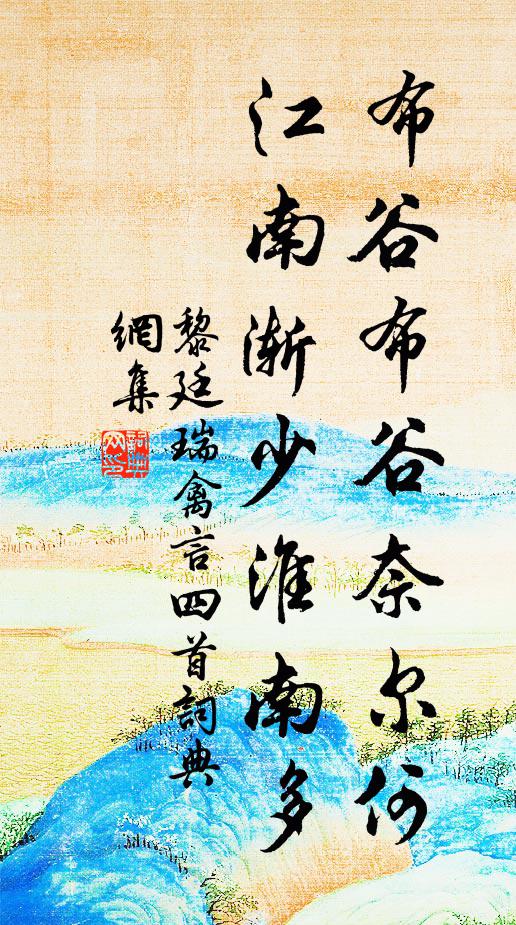 布谷布谷奈尔何
江南渐少淮南多
黎廷瑞禽言四首詞典
網集